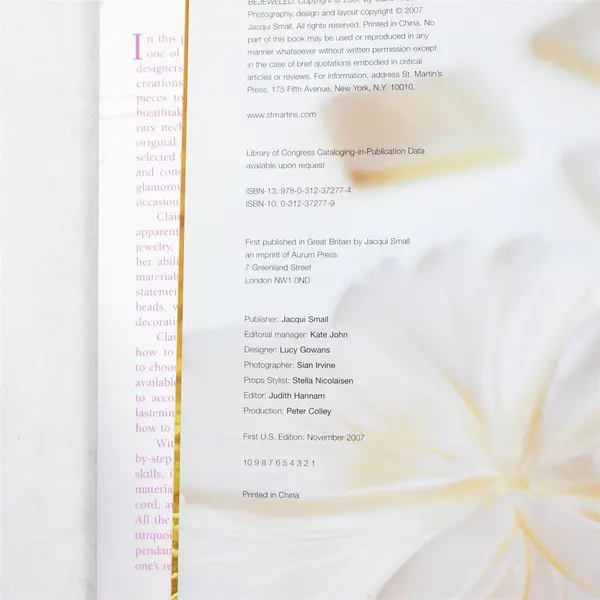 In this
one of
designers
creations
pieces to
breathtak
rary neck
original,
selected
and cons
glamorou
occasion
Clair
apparent
jewelry,
her abili
materials
statemen
beads, w
decorati
Clai
how to
to choo
available
to acco
fastenin
how to
Wit
by-step
skills, i
materia
cord, a
All the
turquoi
pendan
one's re
Photography, design and layout copyright © 2007
Jacqui Small. All rights reserved. Printed in China. No
part of this book may be used or reproduced in any
manner whatsoever without written permission except
in the case of brief quotations embodied in critical
articles or reviews. For information, address St. Martin's
Press, 175 Fifth Avenue, New York, N.Y. 10010.
www.stmartins.com
Library of Congress Cataloging-in-Publication Data
available upon request
ISBN-13: 978-0-312-37277-4
ISBN-10: 0-312-37277-9
First published in Great Britain by Jacqui Small
an imprint of Aurum Press
7 Greenland Street
London NW1 0ND
Publisher: Jacqui Small
Editorial manager: Kate John
Designer: Lucy Gowans
Photographer: Sian Irvine
Props Stylist: Stella Nicolaisen
Editor: Judith Hannam
Production: Peter Colley
First U.S. Edition: November 2007
10 9 8 7 6 5 4 3 2 1
Printed in China